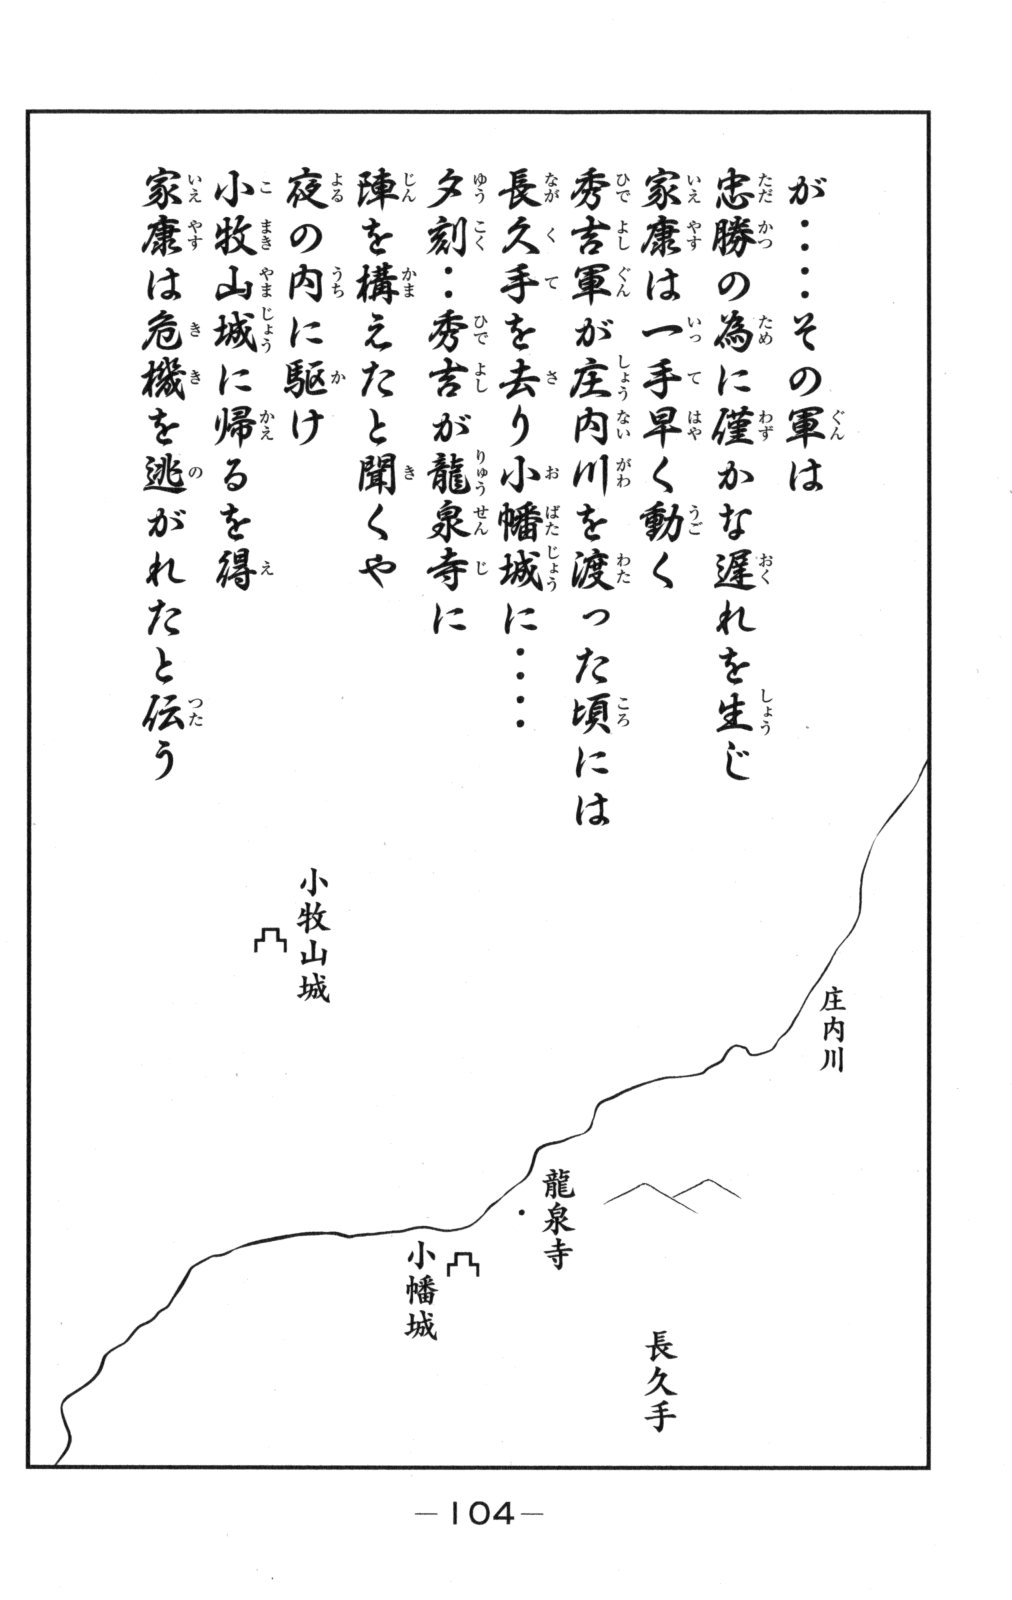 が・・・・その軍は
忠勝の為に僅かな遅れを生じ
家康は一手早く動く
秀吉軍が庄内川を渡った頃には
長久手を去り小幡城に・・・・
夕刻・・秀吉が龍泉寺に
陣を構えたと聞くや
夜の内に駆け
小牧山城に帰るを得
家康は危機を逃がれたと伝う
庄内川
小牧山城
龍泉寺
小幡城
長久手
—104—